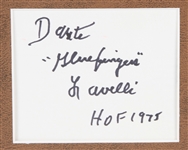 Dante
"Gluefingers"
Lavelli
HOF 1975